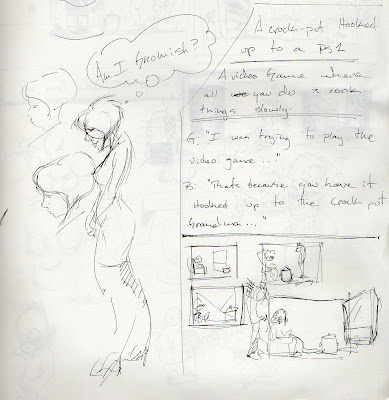 Am I Gnomish?
A crock-pot Hooked
up to a PS1
A video Game where
all you do is cook
things slowly.
G: "I was trying to play the
video game..."
B: "Thats because you have it
Hooked up to the Crock pot
Grandma..."